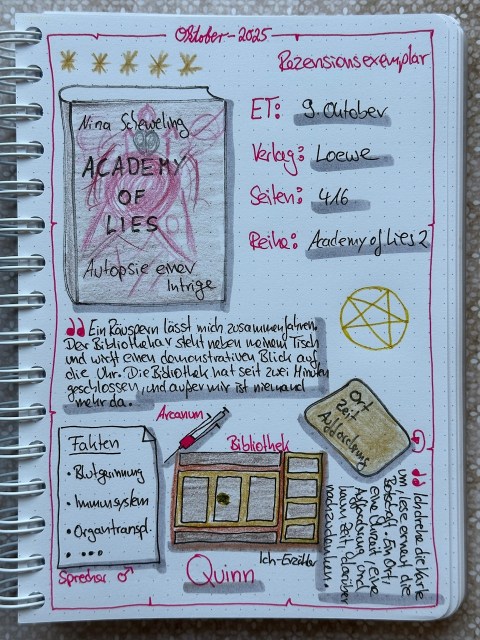 Oktober - 2025
Rezensionsexemplar
Nina Scheweling
ACADEMY
OF
LIES
Autopsie einer
Intrige
ET: 9. Oktober
Verlag: Loewe
Seiten: 416
Reihe: Academy of Lies 2
Ein Räuspern lässt mich zusammenfahren.
Der Bibliothekar steht neben meinem Tisch
und wirft einen demonstrativen Blick auf
die Uhr. Die Bibliothek hat seit zwei Minuten
geschlossen, und außer mir ist niemand
mehr da.
Ort
Zeit
Aufforderung
Arcanum
Bibliothek
Fakten
• Blutgerinnung
• Immunsystem
• Organtranspl.
• • • •
Sprecher ♂
Ich-Erzähler
Quinn
Ich drehe die Karte
um, lese erneut die
Botschaft. Ein Ort,
eine Uhrzeit, eine
Aufforderung und
kaum Zeit, darüber
nachzudenken.